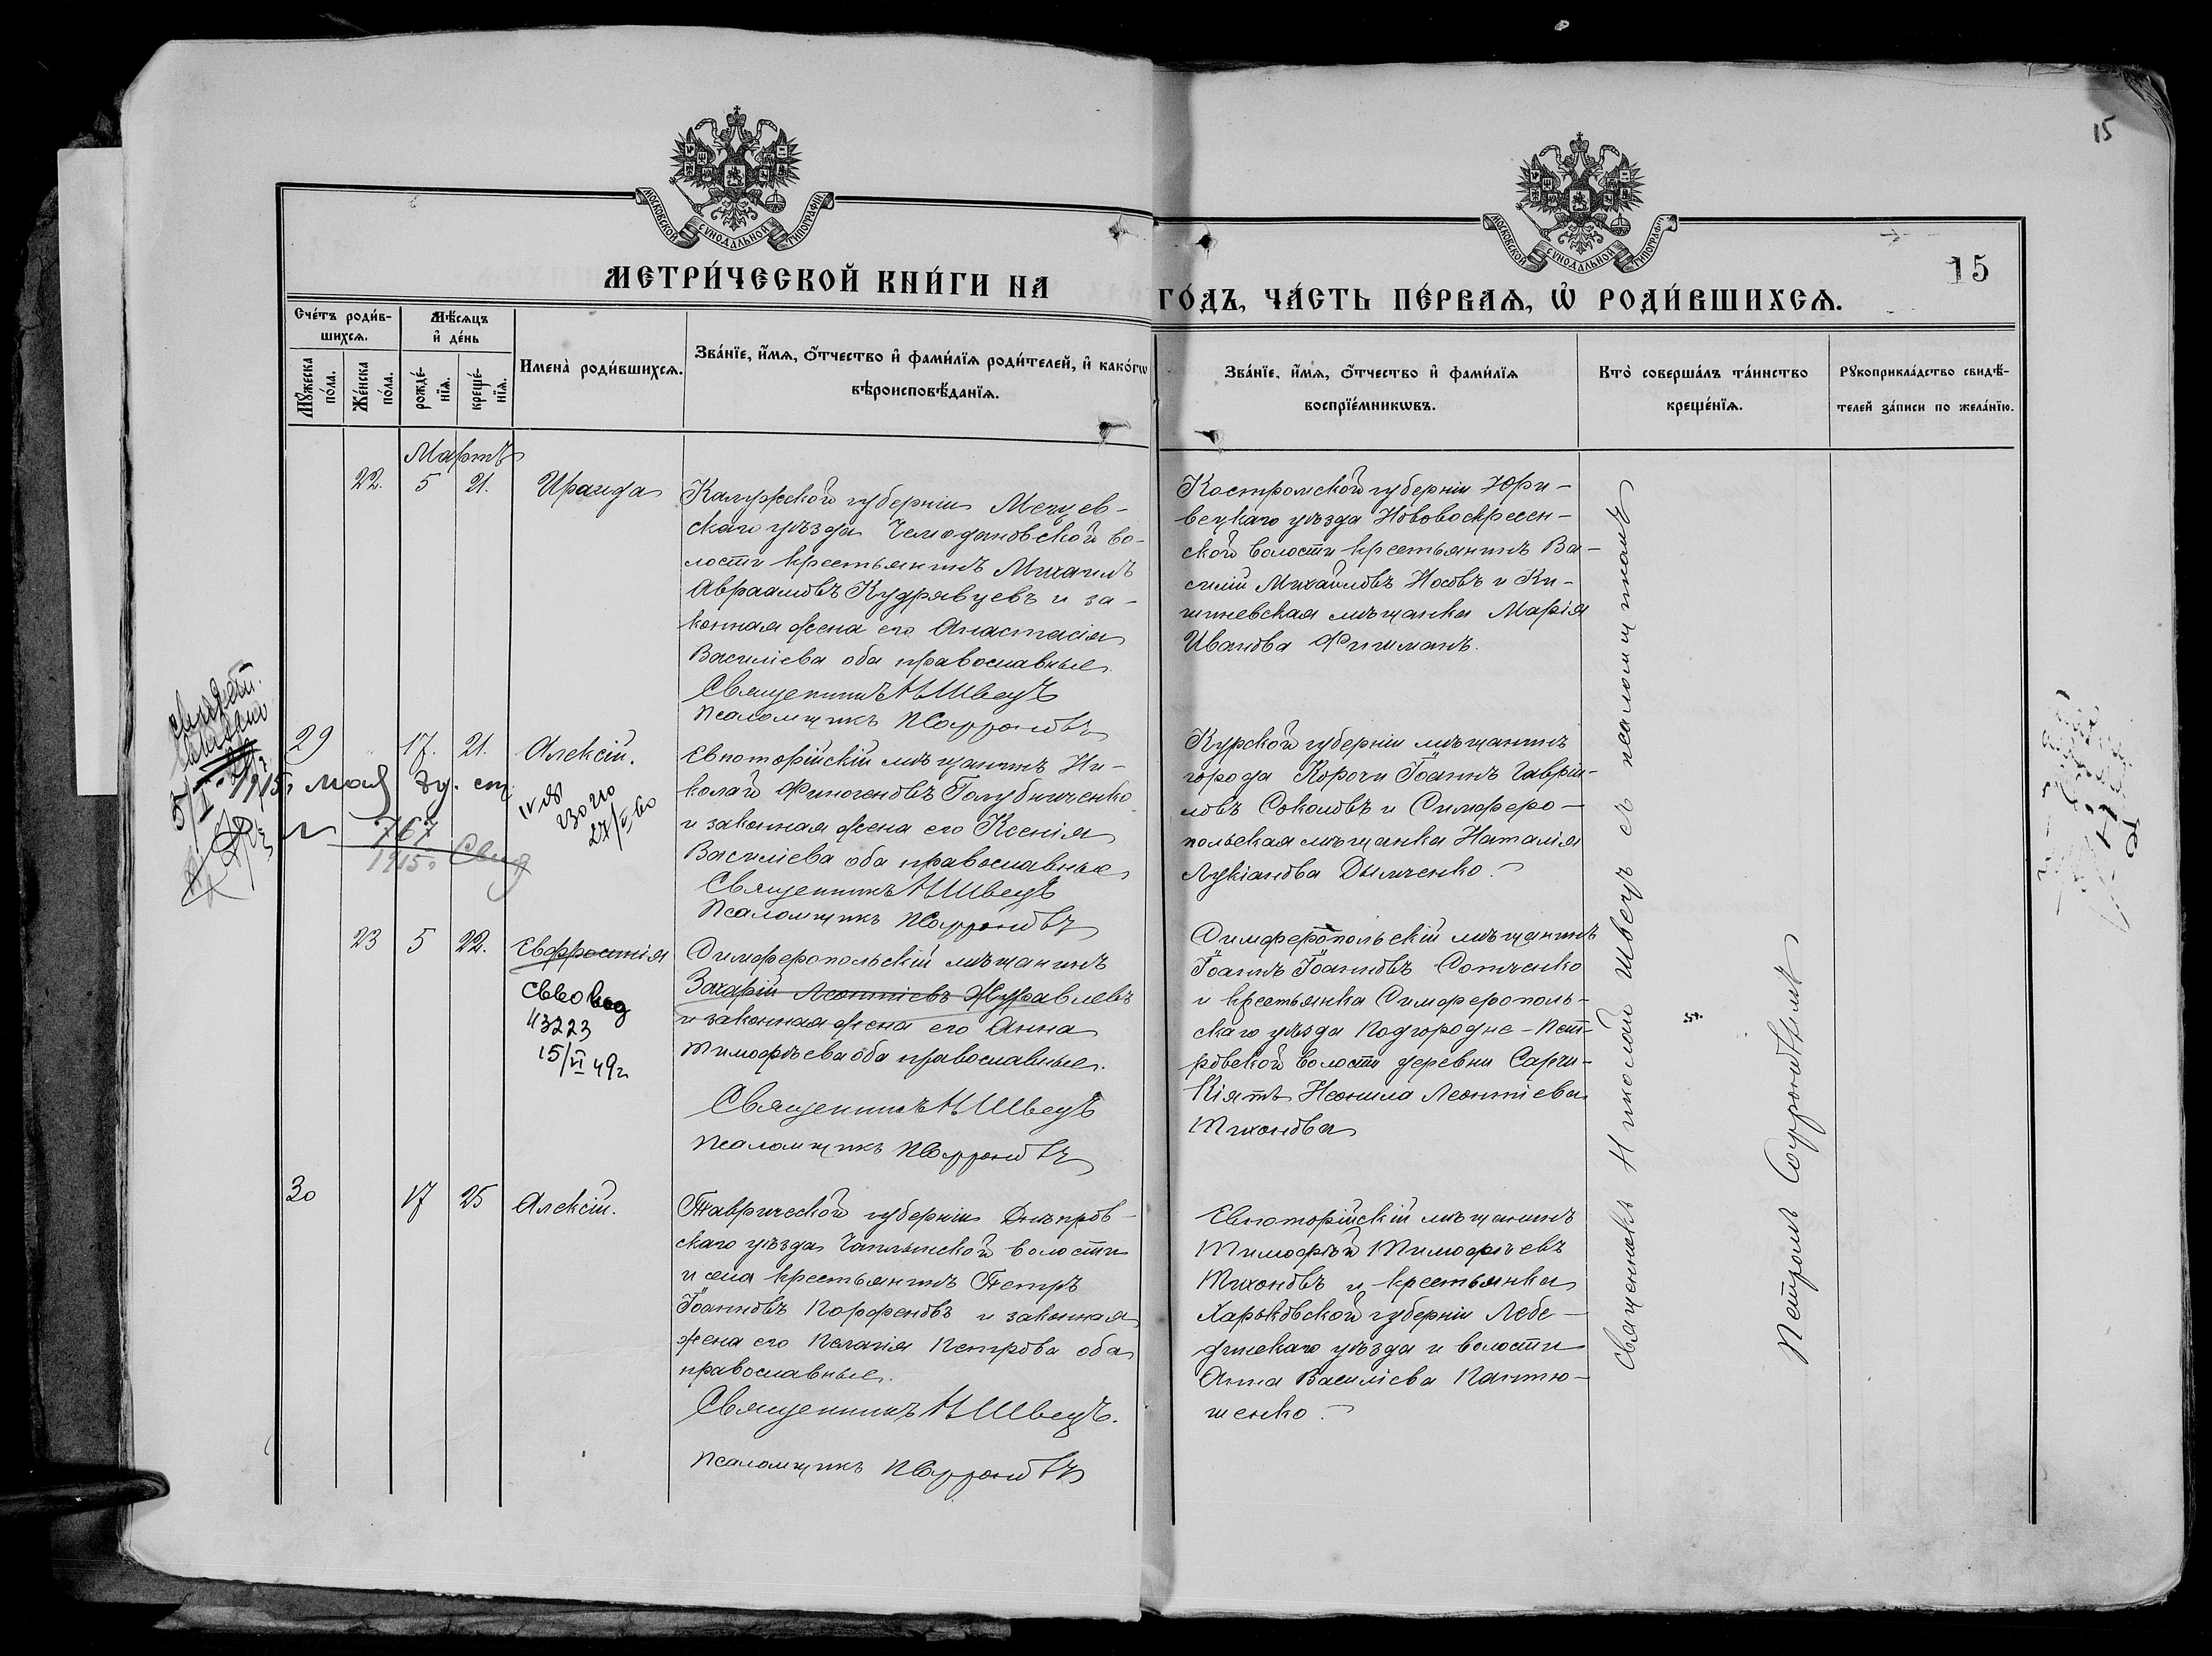 15
МОСКОВСКОЙ СѴНОДАЛЬНОЙ ТИПОГРАФІИ
МОСКОВСКОЙ СѴНОДАЛЬНОЙ ТИПОГРАФІИ
15
МЕТРИ́ЧЕСКОЙ КНИ́ГИ НА
ГО́ДЪ, ЧА́СТЬ ПЕ́РВАѦ, Ѡ҆ РОДИ́ВШИХСѦ.
Сче́тъ роди́в-
шихсѧ.
Мѣ́сѧцъ
и҆ де́нь
Мꙋ́жеска
по́ла.
Же́нска
по́ла.
рожде́-
нїѧ.
креще́-
нїѧ.
Имена̀ роди́вшихсѧ.
Зва́нїе, и҆́мѧ, ѻ҆́тчество и҆ фами́лїѧ роди́телей, и҆ како́гѡ
вѣроисповѣ́данїѧ.
Зва́нїе, и҆́мѧ, ѻ҆́тчество и҆ фами́лїѧ
воспрїе́мникѡвъ.
Кто̀ соверша́лъ та́инство
креще́нїѧ.
Рꙋкоприкла́дство свидѣ́-
телей за́писи по жела́нїю.
Мартъ
22. 5 21. Ираида
Калужской губерніи Мещов-
скаго уѣзда Чемодановской во-
лости крестьянинъ Михаилъ
Авраамовъ Кудрявцевъ и за-
конная жена его Анастасія
Василіева оба православные.
Священникъ Н Швецъ
Псаломщикъ ПСофроновъ
Костромской губерніи Юри-
вецкаго уѣзда Нововоскресен-
ской волости крестьянинъ Ва-
силій Михайловъ Носовъ и Ки-
шиневская мѣщанка Марія
Иванова Фишманъ.
29 17. 21. Алексій.
Евпаторійскій мѣщанинъ Ни-
колай Финогеновъ Голубниченко
и законная жена его Ксенія
Василіева оба православные
Священникъ Н Швецъ
Псаломщикъ ПСофроновъ
Курской губерніи мѣщанинъ
города Корочи Іоаннъ Гаврии-
ловъ Соколовъ и Симферо-
польская мѣщанка Наталія
Лукіанова Дымченко.
1915г мая
767
1915г Свид
23010
27/V 60
23 5 22. Евфросинія
Симферопольскій мѣщанинъ
Захарій Леонтіевъ Журавлевъ
и законная жена его Анна
Тимофѣева оба православные.
Священникъ Н Швецъ
Псаломщикъ ПСофроновъ
43223
15/VI 49г
Симферопольскій мѣщанинъ
Іоаннъ Іоанновъ Сотченко
и крестьянка Симферополь-
скаго уѣзда Подгородне-Пет-
ровской волости деревни Сарчи-
Кіятъ Неонила Леонтіева
Тихонова
30 17 25 Алексій.
Таврической губерніи Днѣпров-
скаго уѣзда Чаплынской волости
и села крестьянинъ Петръ
Іоанновъ Парфеновъ и законная
жена его Пелагія Петрова оба
православные.
Священникъ Н Швецъ.
Псаломщикъ ПСофроновъ
Евпаторійскій мѣщанинъ
Тимофѣй Тимофѣевъ
Тихоновъ и крестьянка
Харьковской губерніи Лебе-
динскаго уѣзда и волости
Анна Василіева Пантю-
шенко.
Священникъ Николай Швецъ съ псаломщикомъ
Петромъ Софроновымъ